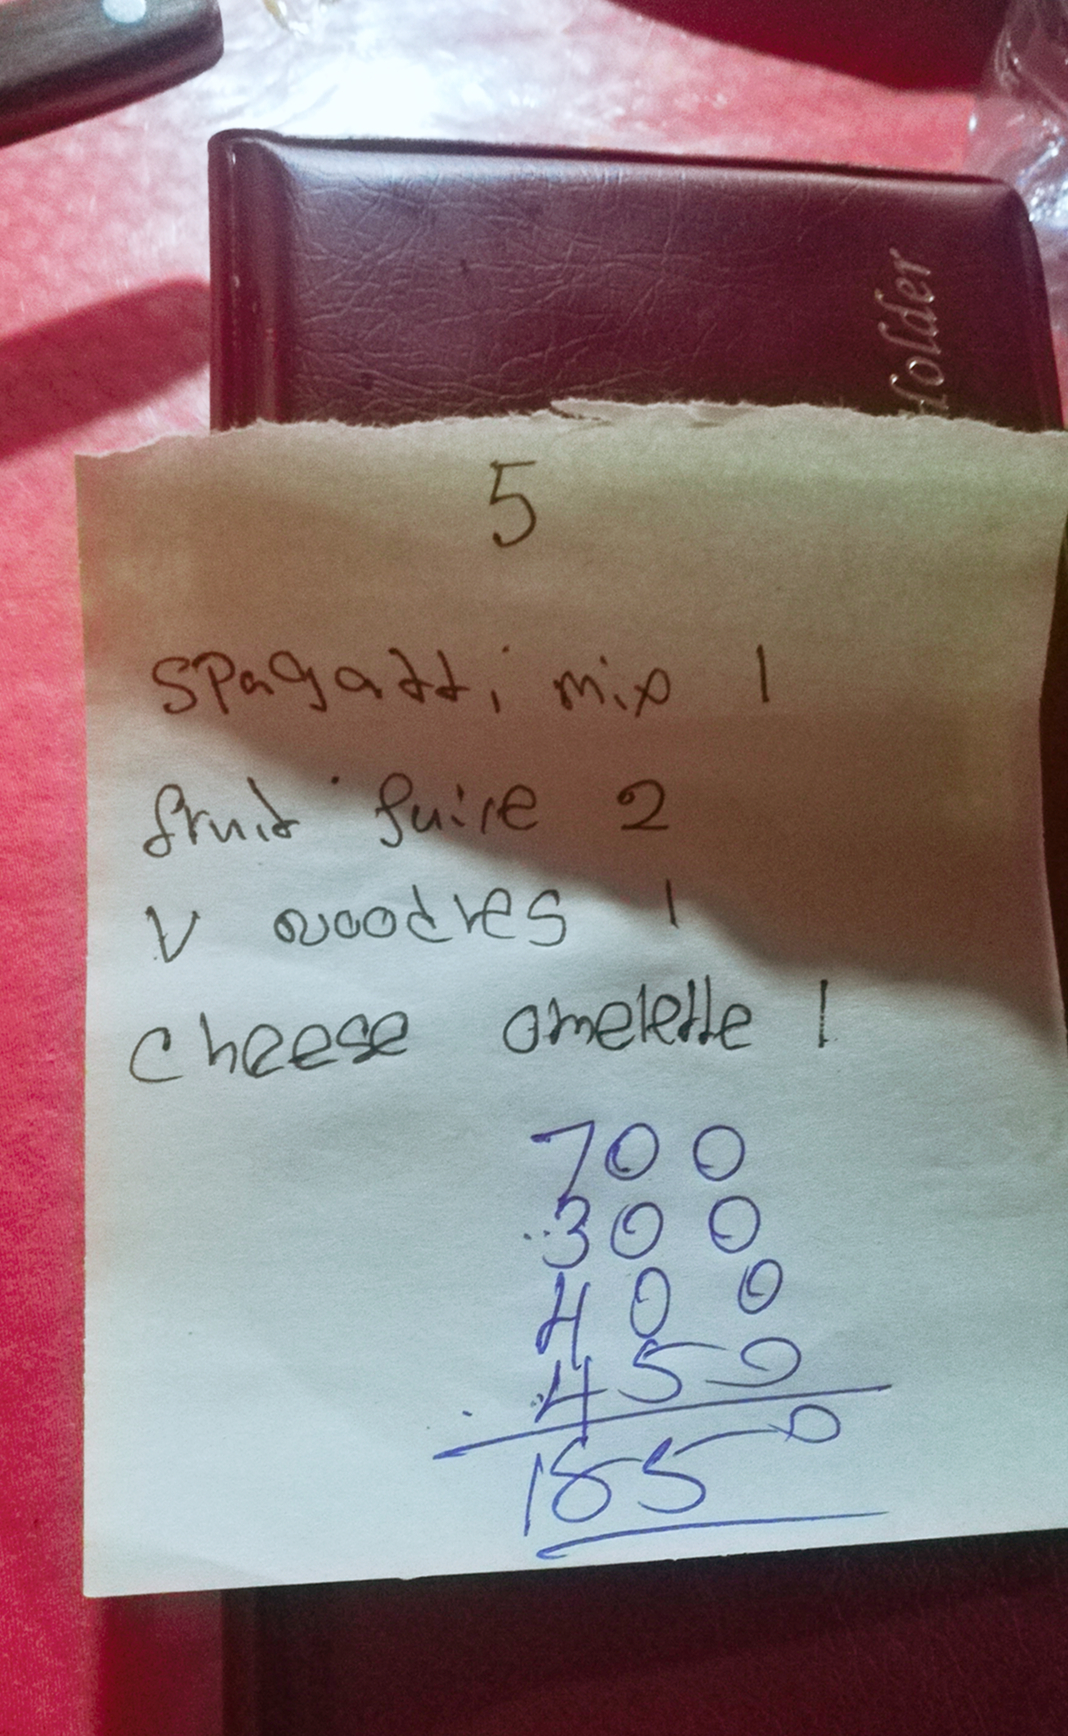 Holder
5
spagatti mix 1
fruit juice 2
V noodles 1
cheese omelette 1
700
300
400
450
1850